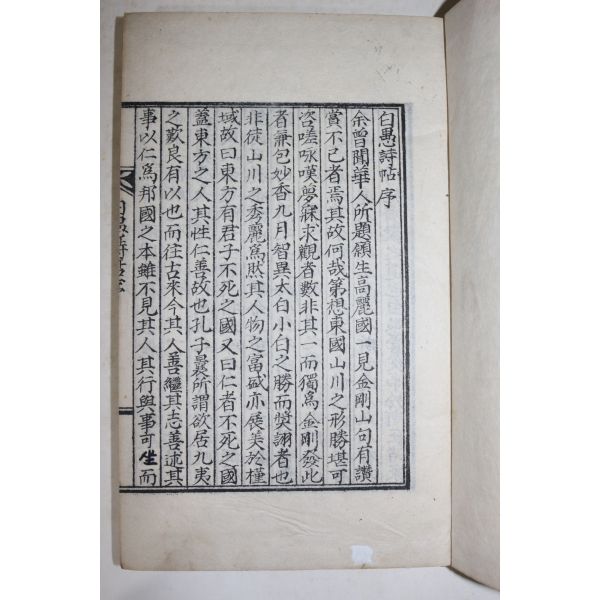 白愚詩帖序
余曾聞華人所題願生高麗國一見金剛山句有讚
賞不已者焉其故何哉第想東國山川之形勝堪可
咨嗟咏嘆夢寐求觀者數非其一而獨爲金剛發此
者兼包妙香九月智異太白小白之勝而奬詡者也
非徒山川之秀麗爲肰其人物之富盛亦展美於槿
域故曰東方有君子不死之國又曰仁者不死之國
蓋東方之人其性仁善故也孔子曩所謂欲居九夷
之歎良有以也而往古來今其人善繼其志善述其
事以仁爲邦國之本雖不見其人其行與事可坐而
白愚詩帖序